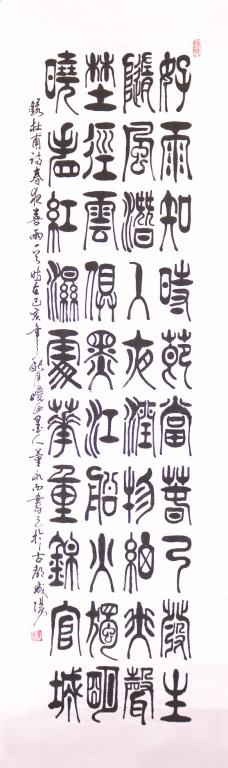 好雨知時節當春乃發生
隨風潛入夜潤物細無聲
埜徑雲俱黑江船火獨明
曉看紅濕處華重錦官城
錄杜甫詩春夜喜雨一首時在己亥年秋月曉函墨人董永西書之於古都咸陽